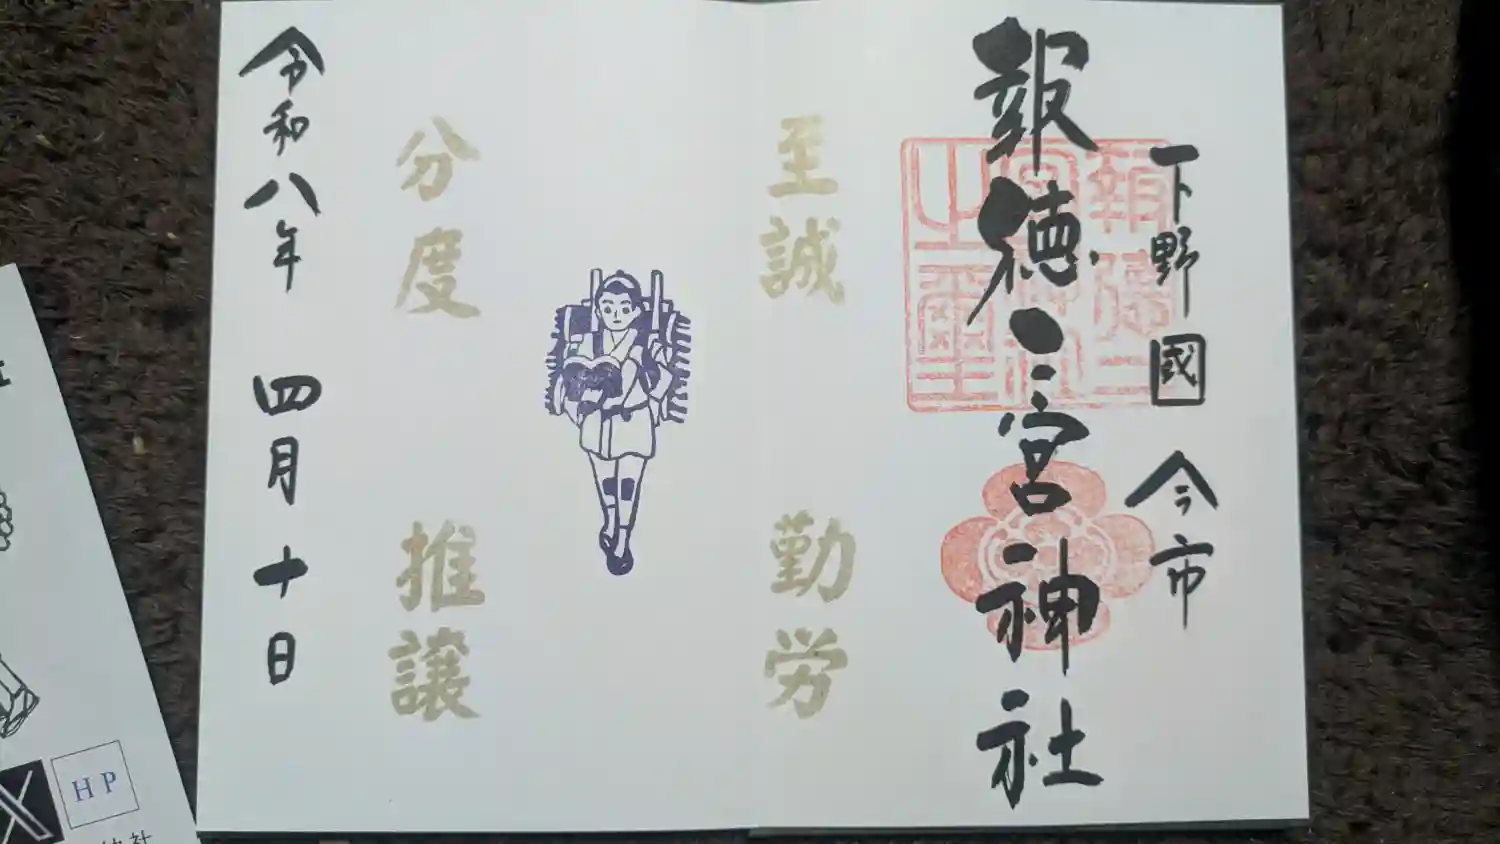 下野國 今市
報徳二宮神社
報徳二
宮神社
之璽
至誠
勤労
分度
推譲
令和八年 四月 十日
X
HP